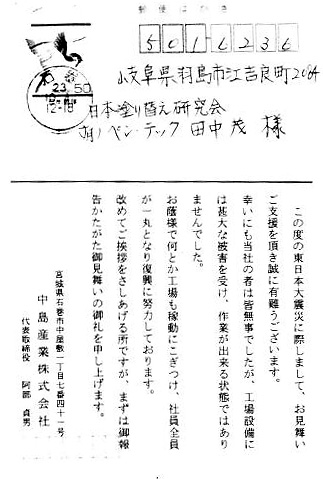 郵便はがき
5016236
岐阜県羽島市江吉良町2084
日本塗り替え研究会
(有)ペン・テック 田中茂 様
23.
12-18
この度の東日本大震災に際しまして、お見舞い
ご支援を頂き誠に有難うございます。
幸いにも当社の者は皆無事でしたが、工場設備に
は甚大な被害を受け、作業が出来る状態ではあり
ませんでした。
お蔭様で何とか工場も稼動にこぎつけ、社員全員
が一丸となり復興に努力しております。
改めてご挨拶をさしあげる所ですが、まずは御報
告かたがた御見舞いの御礼を申し上げます。
宮城県石巻市中屋敷一丁目七番四十一号
中島産業株式会社
代表取締役 阿部 貞男